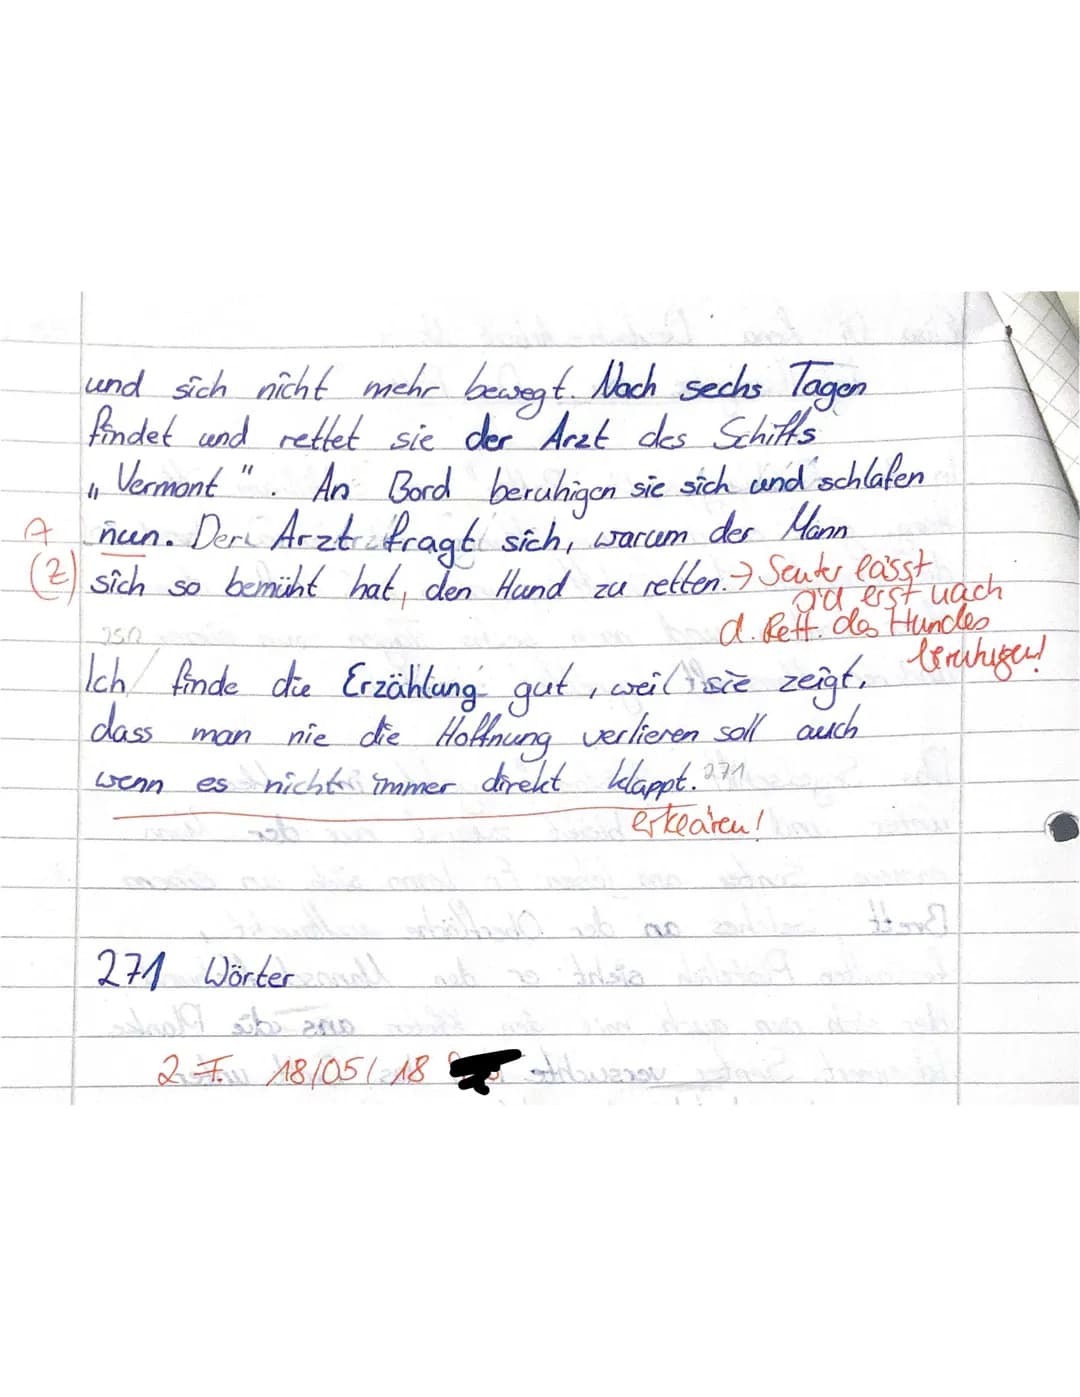 und sich nicht mehr bewegt. Nach sechs Tagen
findet und rettet sie der Arzt des Schiffs
„Vermont". An Bord beruhigen sie sich und schlafen
A nun. Der Arzt fragt sich, warum der Mann
(Z) sich so bemüht hat, den Hund zu retten. → Senter lässt
erst nach
d. Rett. des Hundes
beruhigen!
250
Ich finde die Erzählung gut, weil sie zeigt,
dass man nie die Hoffnung verlieren soll auch
wenn es nicht immer direkt klappt. 271
erklären!
271 Wörter
2. F. 18/05/18